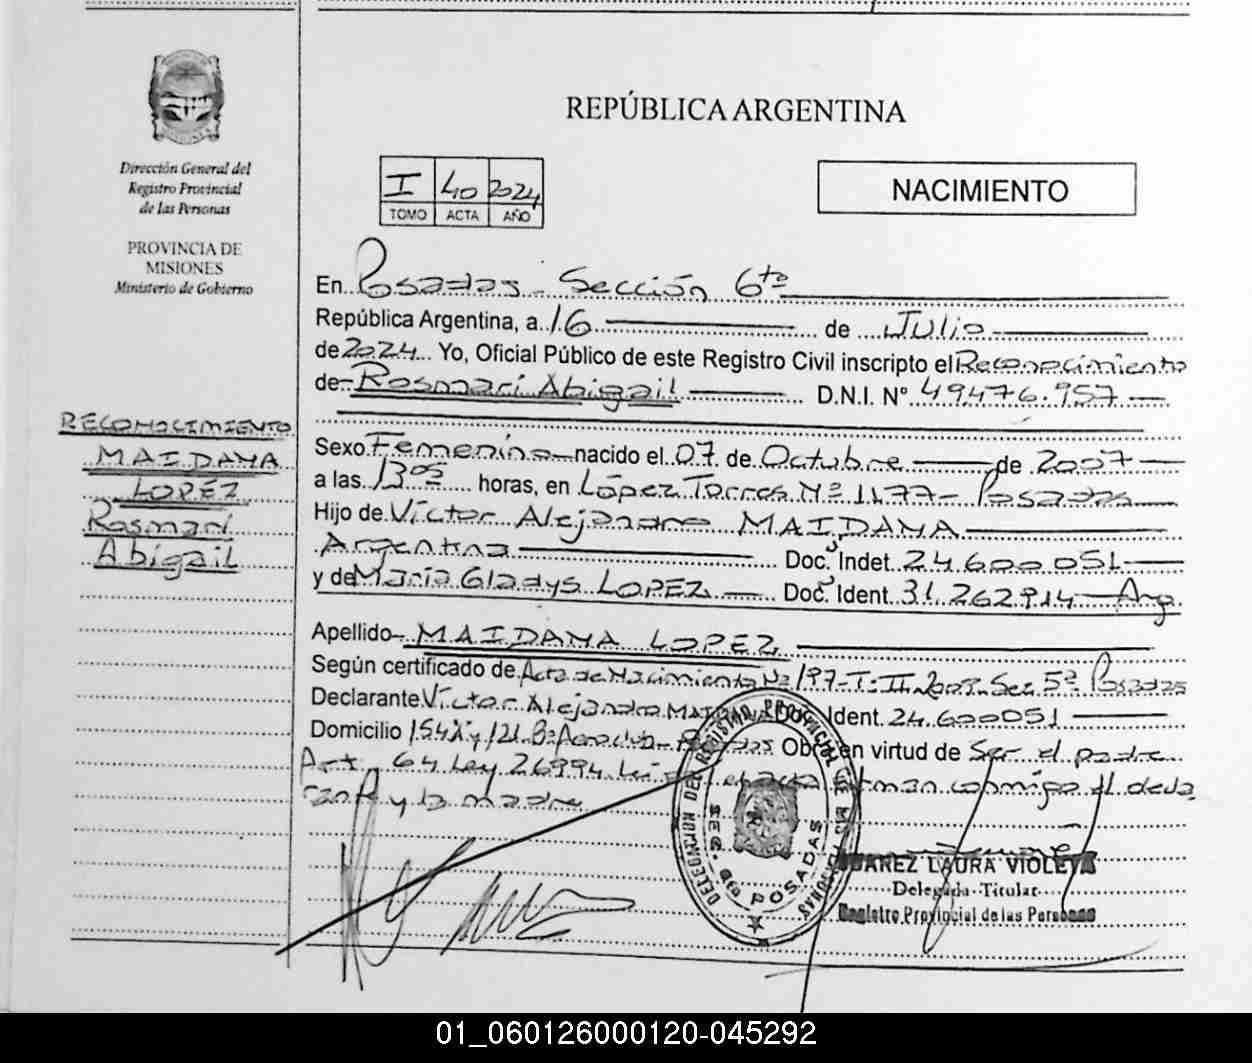 Dirección General del
Registro Provincial
de las Personas
PROVINCIA DE
MISIONES
Ministerio de Gobierno
REPÚBLICA ARGENTINA
I 40 2024
TOMO ACTA AÑO
NACIMIENTO
En Posadas - Sección 6ta
República Argentina, a 16 de Julio
de 2024 Yo, Oficial Público de este Registro Civil inscripto el Reconocimiento
de Rosmari Abigail D.N.I. N° 49476.957
RECONOCIMIENTO
MAIDANA
LOPEZ
Rosmari
Abigail
Sexo Femenino nacido el 07 de Octubre de 2007
a las 13 horas, en López Torres Nº 1177 - Posadas
Hijo de Víctor Alejandro MAIDANA
Argentina Doc. Indet. 24.600.051
y de María Gladys LOPEZ Doc. Ident. 31.262.914 Arg
Apellido MAIDANA LOPEZ
Según certificado de Acta de Nacimiento Nº 197-T: II Sec 5ª Posadas
Declarante Víctor Alejandro Ident. 24.600051
Domicilio 154 y 121 Bº Obra en virtud de Ser el padre
Art. 64 Ley 26994 el acta conmigo el decla
rante y la madre
DELEGACION DEL REGISTRO PROVINCIAL DE
SEC. 6ta POSADAS
LAURA VIOLETA
Delegada Titular
Registro Provincial de las Personas
01_060126000120-045292